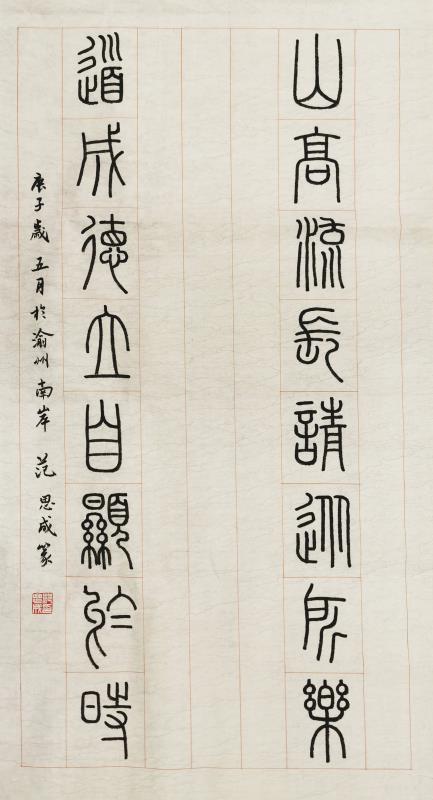 山高流長請從所樂
道成德立自顯於時
庚子歲五月於渝州南岸范思成篆